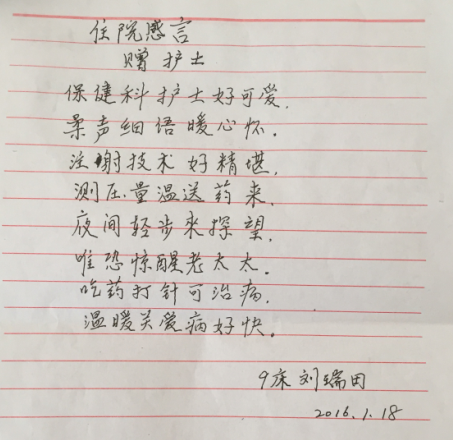 住院感言
赠护士
保健科护士好可爱,
柔声细语暖心怀。
注射技术好精堪,
测压量温送药来,
夜间轻步来探望,
唯恐惊醒老太太。
吃药打针可治病,
温暖关爱病好快。
9床刘瑞田
2016.1.18